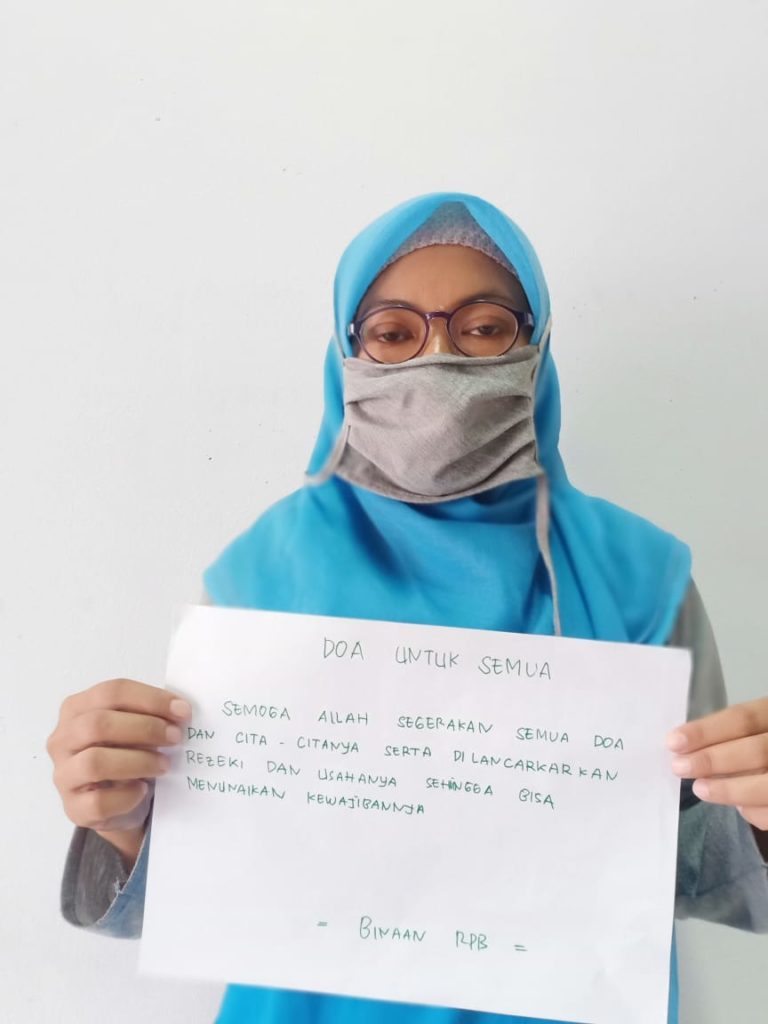 DOA UNTUK SEMUA
SEMOGA ALLAH SEGERAKAN SEMUA DOA
DAN CITA - CITANYA SERTA DILANCARKARKAN
REZEKI DAN USAHANYA SEHINGGA BISA
MENUNAIKAN KEWAJIBANNYA
= BINAAN RPB =